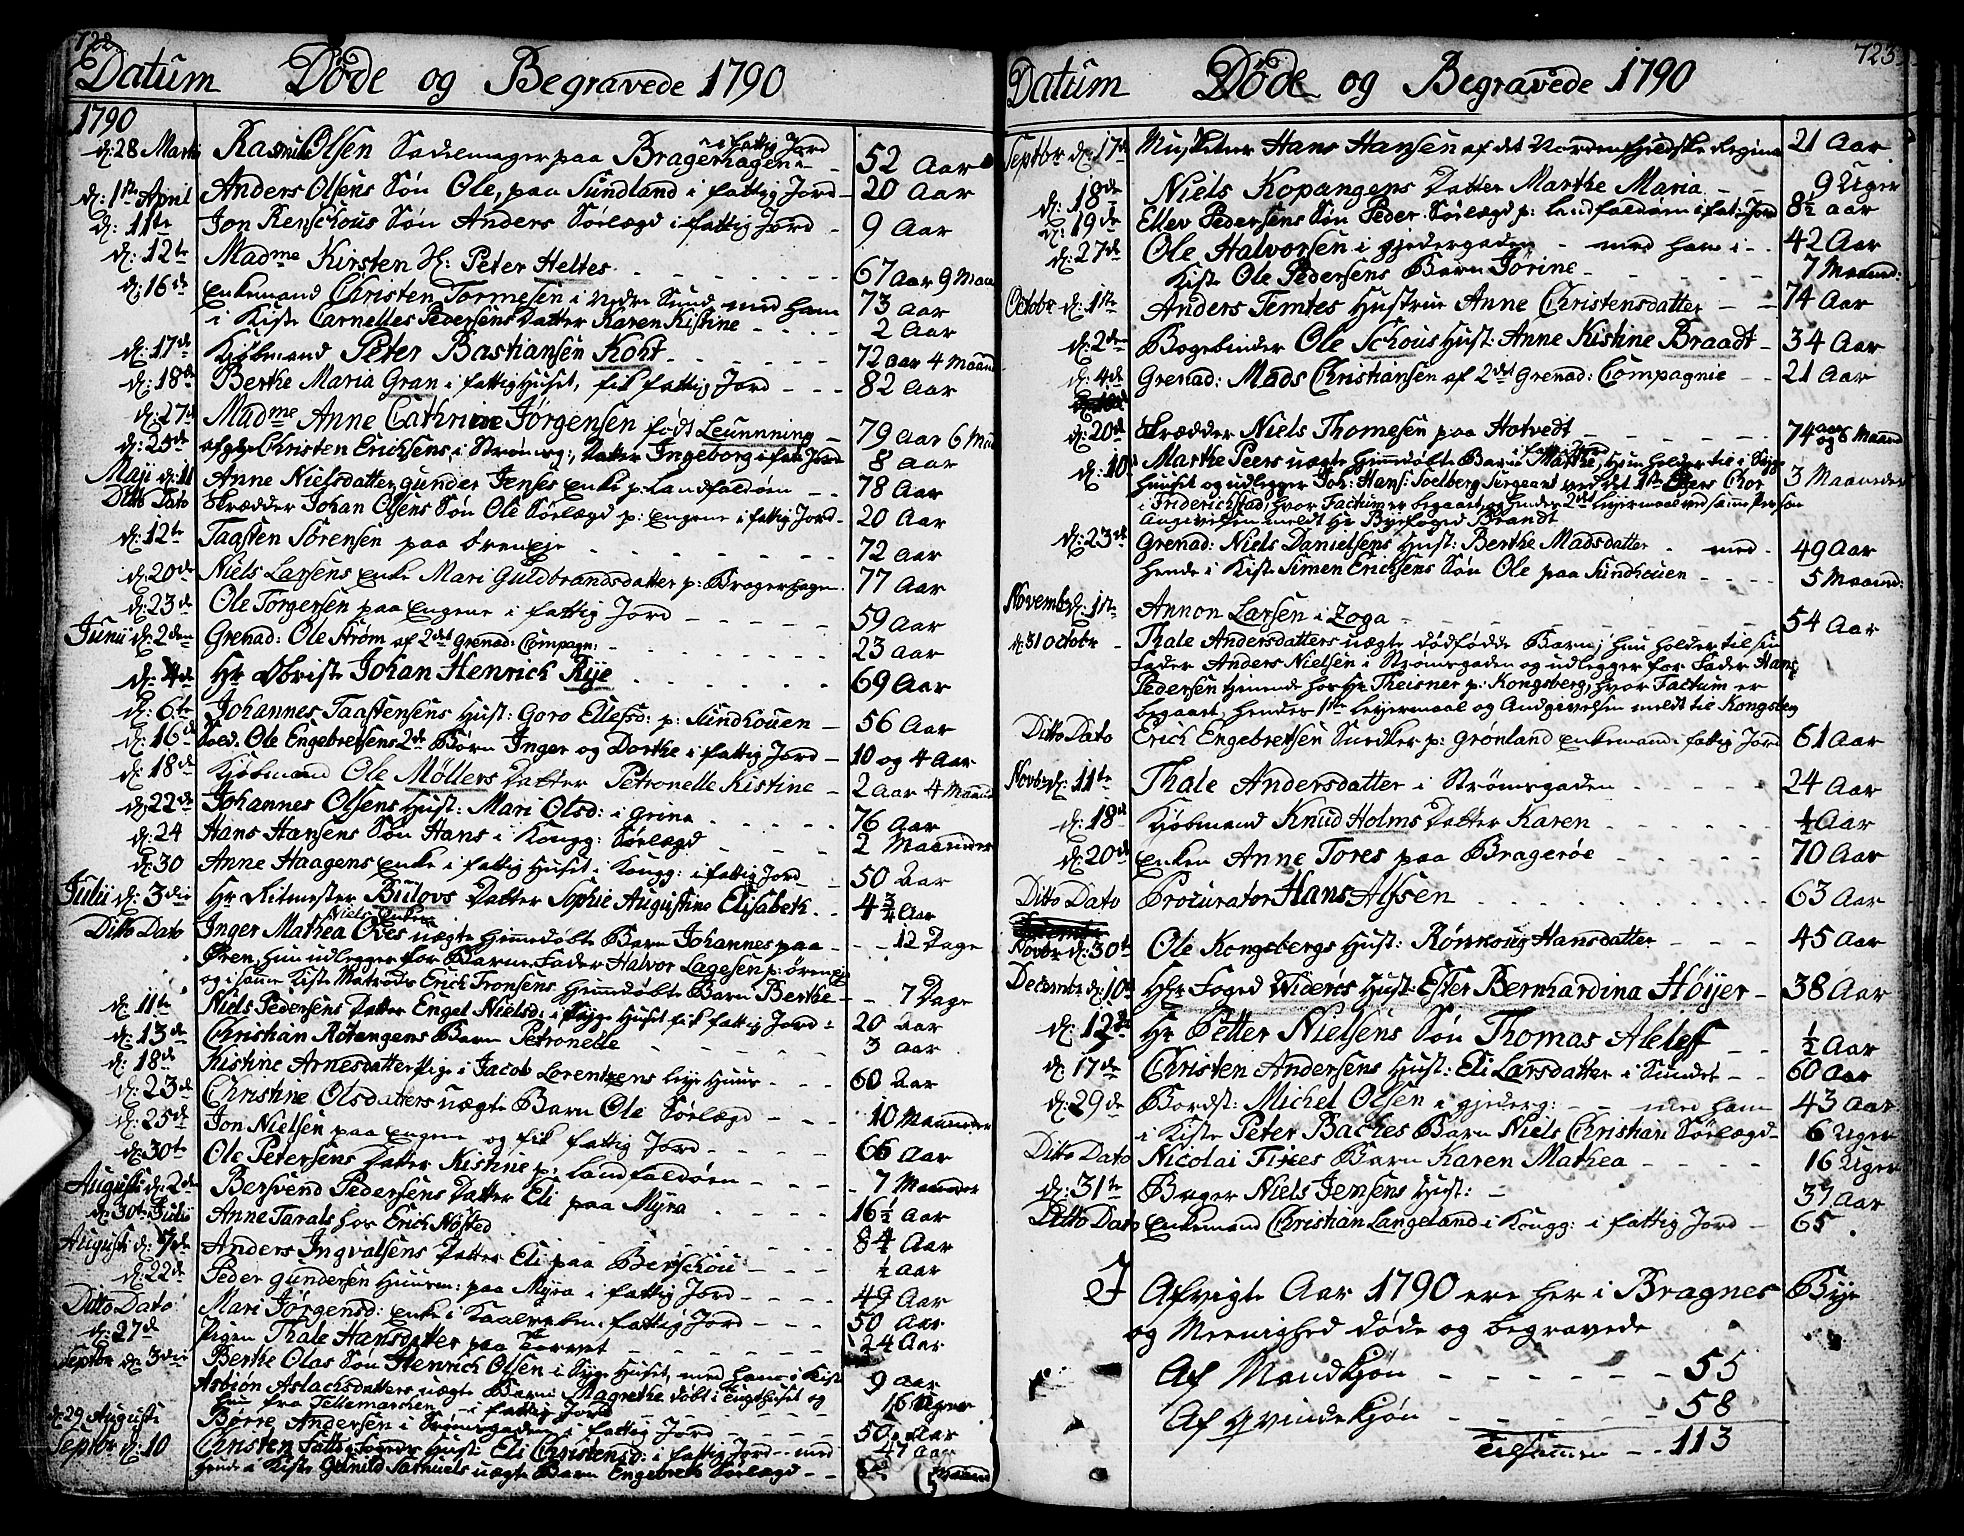 722.
Datum Døde og Begravede 1790
1790
d: 28 Martii Rasmus Olsen Sadelmager paa Bragerhagen i fattig Jord 52 Aar
d: 1ste April Anders Olsens Søn Ole, paa Sundland i fattig Jord 20 Aar
d: 11te Jon Renschous Søn Anders Sørlægd i fattig Jord 9 Aar
d: 12te Madme Kirsten Sl: Peter Heltes 67 Aar 9 Maan
d: 16de Enkemand Christen Tormesen i Nedre Sund med ham 73 Aar
i Kiste Carnelles Pedersens Datter Karen Kistine 2 Aar
d: 17de Kjøbmand Peter Bastiansen Koht 72 aar 4 Maan
d: 18de Berthe Maria Gran i fattighuset, fik fattig Jord 82 Aar
d: 27de Madme Anne Cathrine Jørgensen født Leunnning 79 aar 6 Maa
d: 25de afgde Christen Erichsens i Strømsg:, Datter Ingeborg i fat: Jord 8 aar
Maji d: 11 Anne Nielsdatter, gunder Jenses Enke p: Landfaldøen 78 Aar
Ditto Dato Skrædder Johan Olsens Søn Ole Sørlægd p: Engene i fattig Jord 20 Aar
d: 12te Taasten Sørensen paa Øreneje 72 Aar
d: 20de Niels Larsens Enke Mari Guldbrandsdatter p: Bragerhagen 77 Aar
d: 23de Ole Torgersen paa Engene i fattig Jord 59 Aar
Junii d: 2den Grenad: Ole Strøm af 2det Grenad: Compagn: 23 Aar
d: 4de Hr Obriste Johan Henrich Rye 69 Aar
d: 6te Johannes Taastensens Hust: Goro Ellefsd: p: Sundhouen 56 Aar
d: 16de Sold. Ole Engebretsens 2de Børn Inger og Dorthe i fattig Jord 10 og 4 Aar
d: 18de Kjøbmand Ole Møllers Datter Petronelle Kistine 2 Aar 4 Maan
d: 22de Johannes Olsens Hust: Mari Olsd: i Grina 76 Aar
d: 24 Hans Hansens Søn Hans i Kongg: Sørlægd 2 Maaneder
d: 30 Anne Haagens Enke i fattig Huset i Kongg: i fattig Jord 50 Aar
Julii d: 3die Hr Ritmester Bülovs Datter Sophie Augustine Elisabeth 4 3/4 Aar
Ditto Dato Inger Mathea Oves Niels Enkes uægte Hjemmedøbte Barn Johannes paa 12 Dage
Øren, hun udlegger for Barne fader Halvor Lagesen p: Øreneje
og i samme Kiste Matrods Erich Tronsens Hjemmedøbte Barn Berthe 7 Dage
d: 11te Niels Pedersens Datter Engel Nielsd: i Syge Huset fik fattig Jord 20 Aar
d: 13de Christian Røtangens Barn Petronelle 3 Aar
d: 18de Kistine Arnesdatter Pige i Jacob Lorentzens leje Huus 60 Aar
d: 23de Christine Olsdatters uægte Barn Ole Sørlægd 10 Maaneder
d: 25de Jon Nielsen paa Engene og fik fattig Jord 66 Aar
d: 30te Ole Petersens Datter Kistine p: Landfaldøen 7 Maaneder
Augusti d: 2de Bersvend Pedersens Datter Eli paa Myra 16 1/2 Aar
d: 30te Julii Anne Tarals hos Erich Nøsted 84 Aar
Augusti d: 7de Anders Ingvalsens Datter Eli paa Berschou 1/2 Aar
d: 22de Peder Gundersen Huusm: paa Myra i fattig Jord 49 Aar
Ditto Dato Mari Jørgensd: Enke i fattig Jord 50 Aar
d: 27de Pigen Thale Hansdatter paa Torvet 24 Aar
Septbr d: 3die Berthe Olas Søn Henrich Olsen i Syge Huset, med ham i Kist 9 aar
Asbiøn Aslachsdatters uægte Barn Magrethe døbt i Tugthuset og 16 Uger
hun fra Tellemarchen i fattig Jord
d: 29 Augusti Børre Andersen i Strømsgaden i fattig Jord 50 Aar
Septbr d: 10 Christen Hust: Eli Christensd: i fattig Jord med 47 aar
hende i Kiste Gunild Samuels uægte Barn Engebreth Sørlægd 5 Maaned
723
Datum Døde og Begravede 1790
Septbr d: 17de Musketeer Hans Hansen af det Nordenfjeldske Regime 21 Aar
d: 18de Niels Kopangens Datter Marthe Maria 9 Uger
d: 19de Ellev Pedersens Søn Peder Sørlægd p: Landfaldøen i fat: Jord 8 1/2 aar
d: 27de Ole Halvorsen i gjedergaden med ham i 42 Aar
Kiste Ole Pedersens Barn Jørine 7 Maaned:
Octobr d: 1ste Anders Temtes Hustrue Anne Christensdatter 74 Aar
d: 2den Bogebinder Ole Schous Hust: Anne Kistine Braadt 34 Aar
d: 4de Grenad: Mads Christiansen af 2det Grenad: Compagnie 21 Aar
d: 20de Skrædder Niels Thomesen paa Hotvedt 74 aar og 6 Maaned
d: 10 Marthe Peers uægte Hjemmdøbte Barn Marthe i fattig Jord, hun holder til i Syge 3 Maaneder
Huuset og udlegger Joh: Hans: Soelberg Sergeant ved det 1ste Chor
i Friderichstad, hvor Factum er begaaet, og hendes 2det Lejermaal ved samme Person
Angivelsen meldt Hr Byefoged Brandt
d: 23de Grenad: Niels Danielsens Hust: Berthe Madsdatter med 49 Aar
hende i Kiste Simen Erichsens Søn Ole paa Sundhouen 5 Maaned:
Novembr d: 1ste Annon Larsen i Zoga 54 Aar
d: 31 Octobr Thale Andersdatters uægte dødfødde Barn, hun holder til sin
Fader Anders Nielsen i Strømsgaden og udlegger for Fader Hans
Pedersen tjenende hos Hr Theisner p: Kongsberg, hvor Factum er
begaaet, hendes 1ste Lejermaal og Andgivelsen meldt til Kongsberg
Ditto Dato Erich Engebretsen Snedker p: Grønland Enkemand i fattig Jord 61 Aar
Novbr d: 11te Thale Andersdatter i Strømsgaden 24 Aar
d: 18de Kjøbmand Knud Holms Datter Karen 1/2 Aar
d: 20de Enken Anne Tores paa Bragerøe 70 Aar
Ditto Dato Procurator Hans Alssen 63 Aar
Novbr d: 30te Ole Kongsbergs Hust: Rønnoug Hansdatter 45 Aar
Decembr d: 10de Hr Foged Widerøs Hust: Ester Bernhardina Höijer 38 Aar
d: 12te Hr Petter Nielsens Søn Thomas Aleleff 1/2 Aar
d: 17de Christen Andersens Hust: Eli Larsdatter i Sundet 60 Aar
d: 29de Bordst: Michel Olsen i gjederg: med ham 43 Aar
i Kiste Peter Baches Barn Niels Christian Sørlægd 6 Uger
Ditto Dato Nicolai Barn Karen Mathea 16 Uger
d: 31te Bager Niels Jensens Hust: 37 Aar
Ditto Dato Enkemand Christian Langeland i Kongg: i fattig Jord 65
I Afvigte Aar 1790 ere her i Bragnes Bye
og Meenighed døde og begravede
Af Mandkjøn 55
Af Qvindekjøn 58
Tilsammen 113